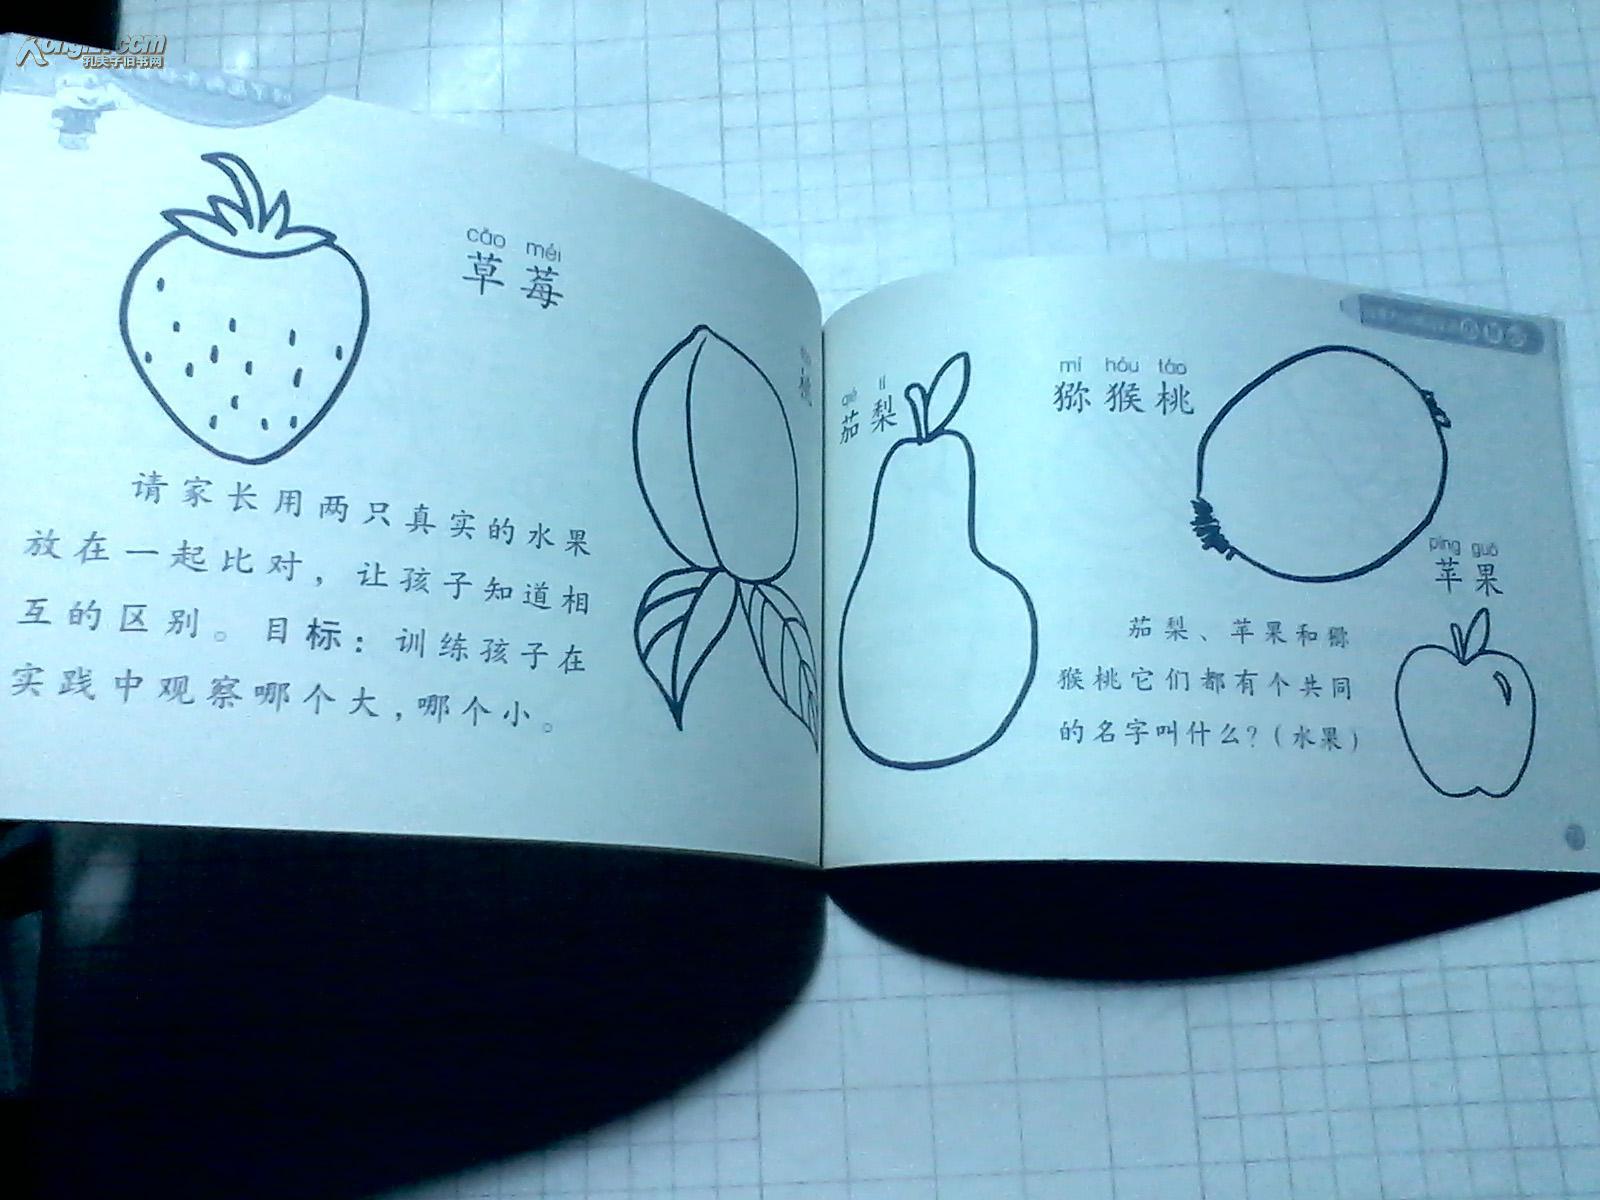 孔夫子旧书网
cǎo méi
草莓
请家长用两只真实的水果
放在一起比对，让孩子知道相
互的区别。目标：训练孩子在
实践中观察哪个大，哪个小。
qié lí
茄梨
mí hóu táo
猕猴桃
píng guǒ
苹果
茄梨、苹果和猕
猴桃它们都有个共同
的名字叫什么？（水果）